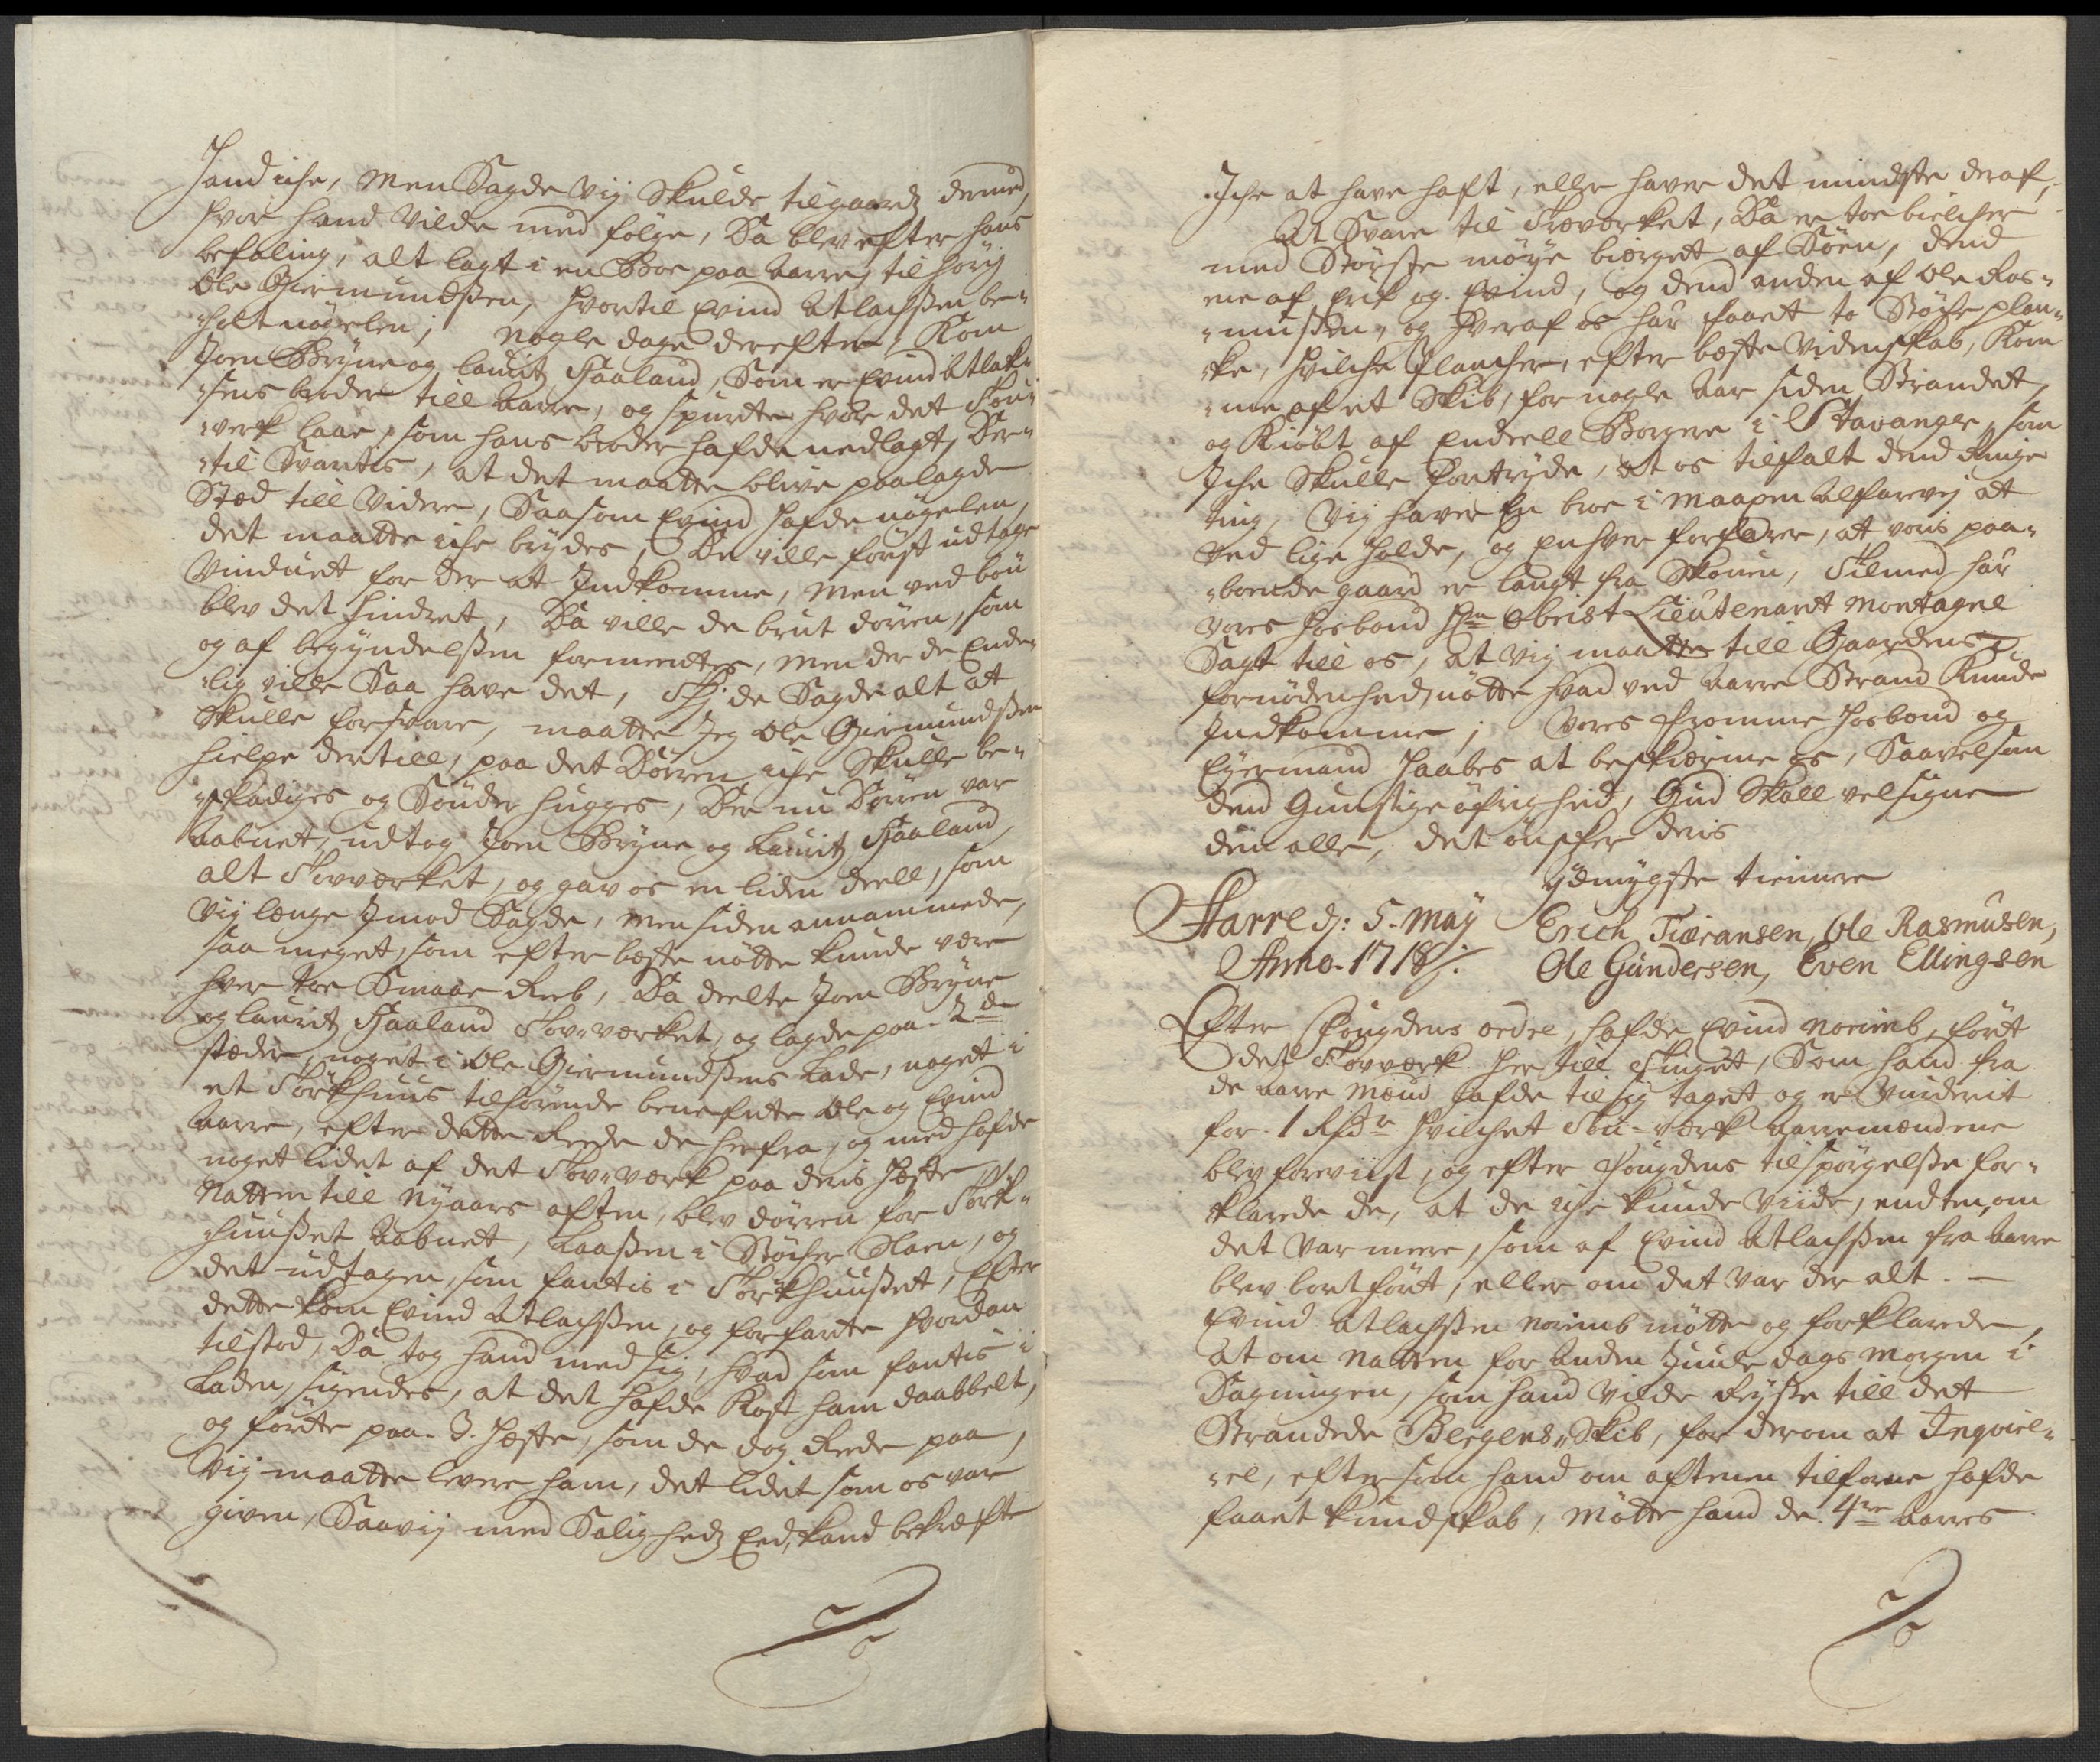 hand iche, men Sagde Vij Skulde tilgaards dermed,
hvor hand Vilde med følge, Da blev efter hans
befaling, alt lagt i en Boe paa Aarre, til hørig
Ole Giermundßen, hvortil Evind Atlachßen be-
holt nøgelen; Nogle dage derefter Kom
Joen Bryne og Lauritz Haaland, Som er Evind Atlach-
sens broder till Aarre, og spurte hvor det Tou-
verk laae, som hans broder hafde nedlagt, Der-
til Svartis, at det maatte blive paa lagde
Sted till Videre, Saasom Evind hafde nøgelen,
det maatte iche brydes, De ville først udtage
Vinduet for der at Indkomme, men ved bøn
blev det hindret, Da ville de brut dørren, som
og af begyndelßen formentes, men der de Ende-
lig ville Saa have det, Thj de Sagde alt at
Skulle forsvare, maatte Jeg Ole Giermundßen
hielpe dertill, paa det Dørren iche Skulle be-
skadiges og Sønder hugges, Der nu Dørren var
Aabnet, udtog Joen Bryne og Lauritz Haaland
alt Tovverket, og gav os en liden deell, som
Vij længe Imod Sagde, men siden annammede,
saa meget, som efter beste nøtte kunde være
hver toe Smaae Reeb, Da deelte Joen Bryne
og Lauritz Haaland Tov-værket, og lagde paa 2de
stæder, noget i Ole Giermundßens Lade, noget i
et Tørkhuus tilhørende bemelte Ole og Evind
Aarre, efter dette Reede de herfra, og med hafde
noget lidet af det Tov-værk paa deris heste
Natten till Nyaars aften, blev dørren for Tørk-
huußet Aabnet, Laaßen i Støcher Slaen, og
det udtagen, som fantis i Tørkhuußet, Efter
dette kom Evind Atlachßen, og forfarte hvordan
tilstod, Da tog hand med sig, hvad som fantis i
Laden, sigendes, at det hafde Kost ham daabbelt,
og førte paa 3. heste, som de dog Reede paa,
Vij maatte levere ham, det lidet som os var
given, Saavij med Salighedz Eed kand bekræfte
Iche at have haft, eller haver det mindste deraf,
At Svare til Træverket, Da er toe bielcher
med Største møye biærget af Søen, dend
ene af Erik og Evind, og dend anden af Ole Ras-
mußen, og hveraf os har faaet to Støche plan-
ke, hvilche Plancher, efter beste Videnskab, Kom
me af et Skib, for nogle Aar siden Strandet,
og Kiøbt af Endeell Borgere i Stavanger, som
Iche Skulle Fortryde, at os tilfalt dend Ringe
ting, Vij haver En broe i maapen Alfarvej at
Ved lige holde, og Enhver forfarer, at voris paa-
boende gaard er langt fra Skouen, Tilmed har
Vores hosbond Hr Obrist Lieutenant Montagne
Sagt till os, at vij maatte till Gaardens
fornødenhed, nøtte hvad ved Aarre Strand Kunde
Indkomme; Vores fromme hosbond og
Eyermand haabes at beskierme os, Saavelsom
dend Gunstige øfrighed, Gud Skall velsigne
dem alle, det ønsker deris
ydmygste tienere
Aarre d: 5. May Erich Tiøransen, Ole Rasmusen,
Anno. 1718/. Ole Gundersen, Even Ellingsen
Efter Fougdens ordre, hafde Evind Norimb, ført
det Tovværk her till Tinget, Som hand fra
de Aarre Mænd hafde til sig taget og er Vurderit
for 1 Rixdr hvilchet Tou-værk Aarremændene
blev foreviist, og efter Fougdens tilspørgelse for-
klarede de, at de iche kunde Viide, endten om
det var mere, som af Evind Atlachßen fra Aarre
blev bortført, eller om det var der alt. —
Evind Atlachßen Norimb møtte og forklarede,
at om Natten for Anden Juule dags Morgen i
Dagningen, som hand Vilde Reyße till det
Strandede Bergens Skib, for derom at Inqvire-
re, eftersom hand om aftenen tilforne hafde
faaet kundskab, Møtte hand de 4re Aarres